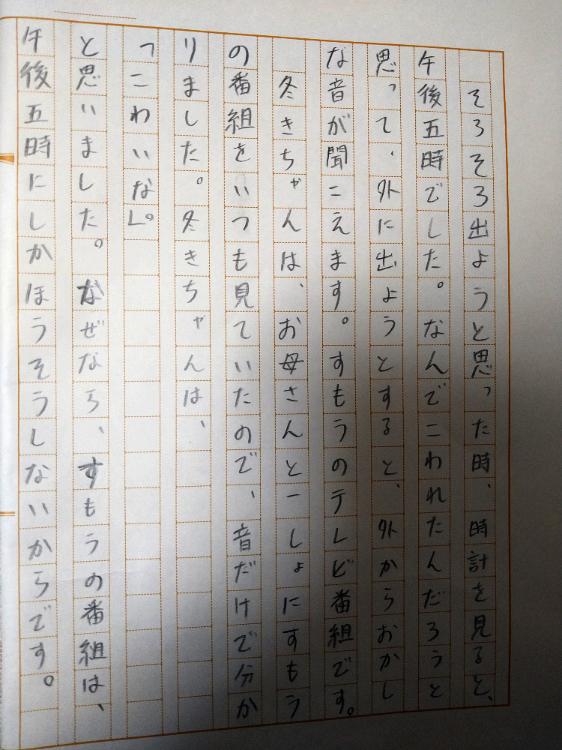 そろそろ出ようと思った時、時計を見ると、
午後五時でした。なんでこわれたんだろうと
思って、外に出ようとすると、外からおかし
な音が聞こえます。すもうのテレビ番組です。
冬きちゃんは、お母さんと一しょにすもう
の番組をいつも見ていたので、音だけで分か
りました。冬きちゃんは、
「こわいな」。
と思いました。なぜなら、すもうの番組は、
午後五時にしかほうそうしないからです。